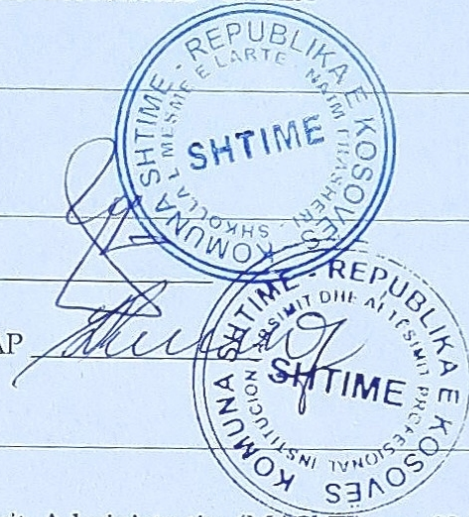 REPUBLIKA E KOSOVËS
KOMUNA SHTIME
SHKOLLA E MESME E LARTË - NAIM FRASHERI
SHTIME
AP
REPUBLIKA E KOSOVËS
KOMUNA SHTIME
INSTITUCION I ARSIMIT DHE AFTËSIMIT PROFESIONAL
SHTIME